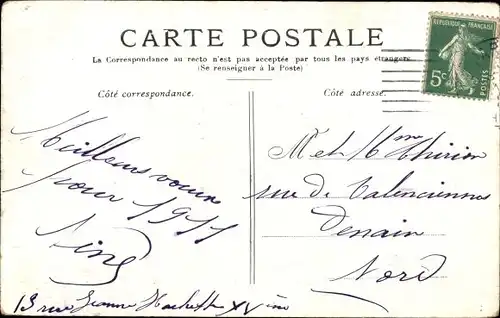 CARTE POSTALE
La Correspondance au recto n'est pas acceptée par tous les pays étrangers
(Se renseigner à la Poste)
Côté correspondance.
Côté adresse.
REPUBLIQUE FRANÇAISE
5c
POSTES
Meilleurs vœux
pour 1911
13 rue Jeanne Hachette XVème
M et Mme Thirion
rue de Valenciennes
Denain
Nord